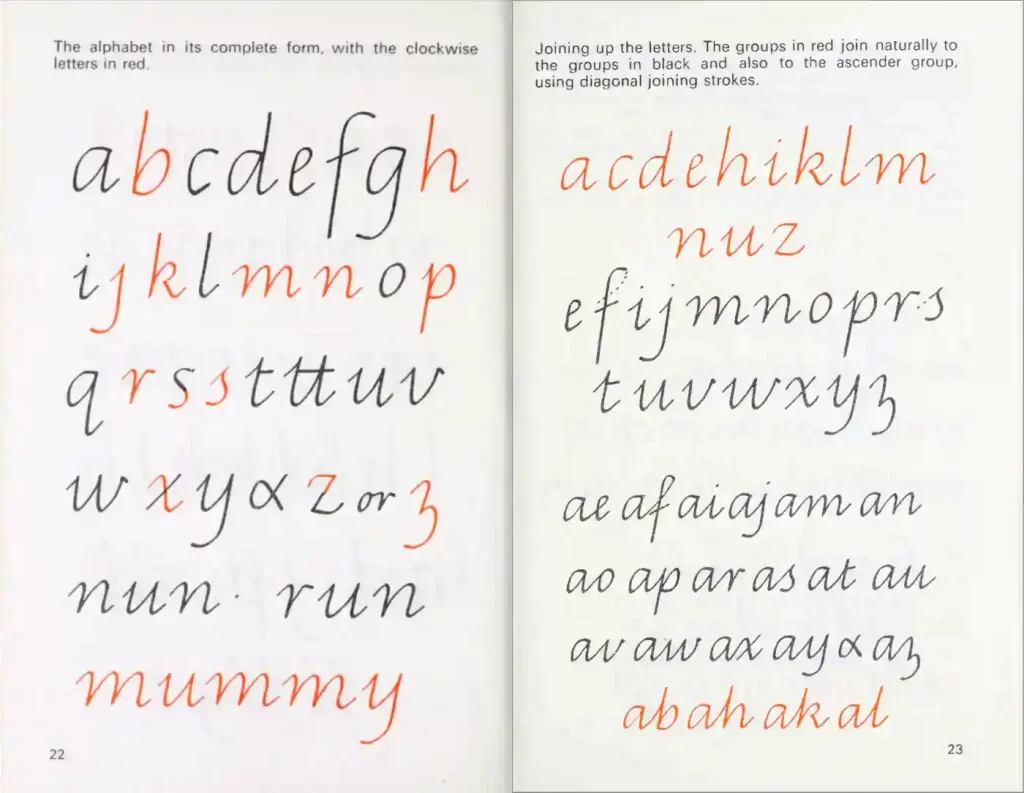 The alphabet in its complete form, with the clockwise
letters in red.
abcdefgh
ijklmnop
qrsstttuuv
wxyαz or ʒ
nun · run
mummy
22
Joining up the letters. The groups in red join naturally to
the groups in black and also to the ascender group,
using diagonal joining strokes.
acdehiklm
nuz
efijmnoprs
tuvwxyʒ
ae af ai aj am an
ao ap ar as at au
av aw ax ay α aʒ
ab ah ak al
23